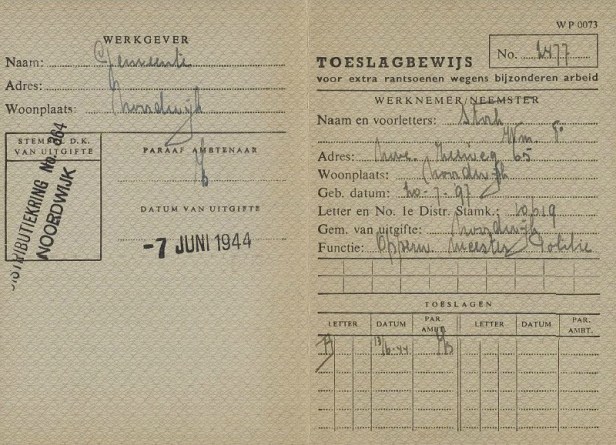 WERKGEVER
Naam: Gemeente
Adres:
Woonplaats: Noordwijk
STEMPEL D.K.
VAN UITGIFTE
DISTRIBUTIEKRING No. 364
NOORDWIJK
PARAAF AMBTENAAR
DATUM VAN UITGIFTE
-7 JUNI 1944
WP 0073
No. 1477
TOESLAGBEWIJS
voor extra rantsoenen wegens bijzonderen arbeid
WERKNEMER/NEEMSTER
Naam en voorletters: Stork
Wm.
Adres: 65
Woonplaats: Noordwijk
Geb. datum: 20-7-97
Letter en No. 1e Distr. Stamk.: 10619
Gem. van uitgifte: Noordwijk
Functie: Opperw. meester Politie
TOESLAGEN
LETTER DATUM PAR. AMBT. LETTER DATUM PAR. AMBT.
13/6-44